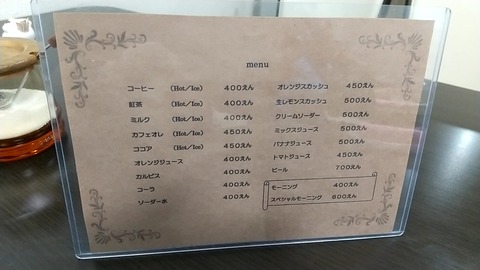 menu
コーヒー (Hot/Ice) 400えん
紅茶 (Hot/Ice) 400えん
ミルク (Hot/Ice) 400えん
カフェオレ (Hot/Ice) 450えん
ココア (Hot/Ice) 450えん
オレンジジュース 400えん
カルピス 400えん
コーラ 400えん
ソーダー水 400えん
オレンジスカッシュ 450えん
生レモンスカッシュ 500えん
クリームソーダー 500えん
ミックスジュース 500えん
バナナジュース 500えん
トマトジュース 450えん
ビール 700えん
モーニング 400えん
スペシャルモーニング 600えん